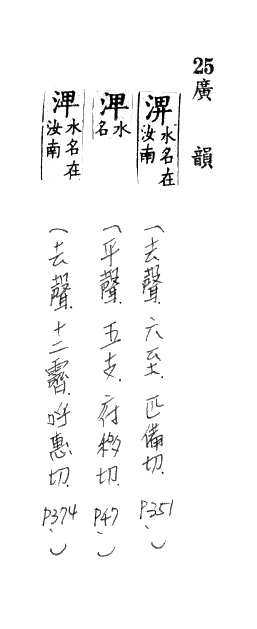 25 廣韻
淠水名在汝南（去聲.六至.匹備切.P.351.）
渒水名（平聲.五支.府移切.P47.）
渒水名在汝南（去聲.十二霽.呼惠切.P374.）